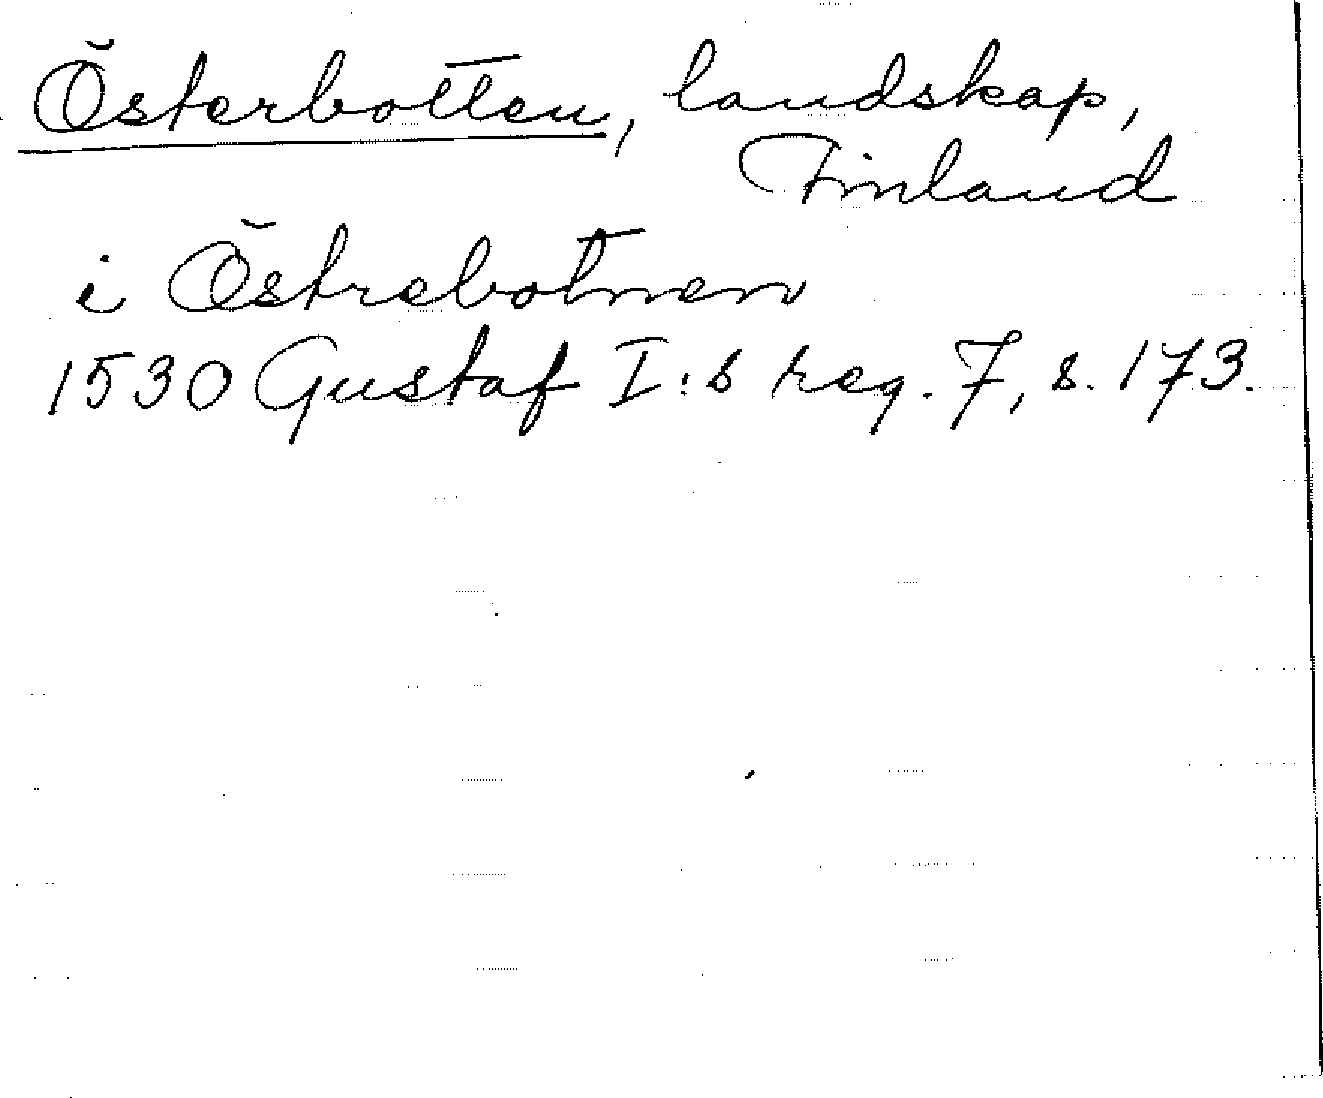 Österbotten, landskap,
Finland
i Östrebotnen
1530 Gustaf I:s reg. 7, s. 173.